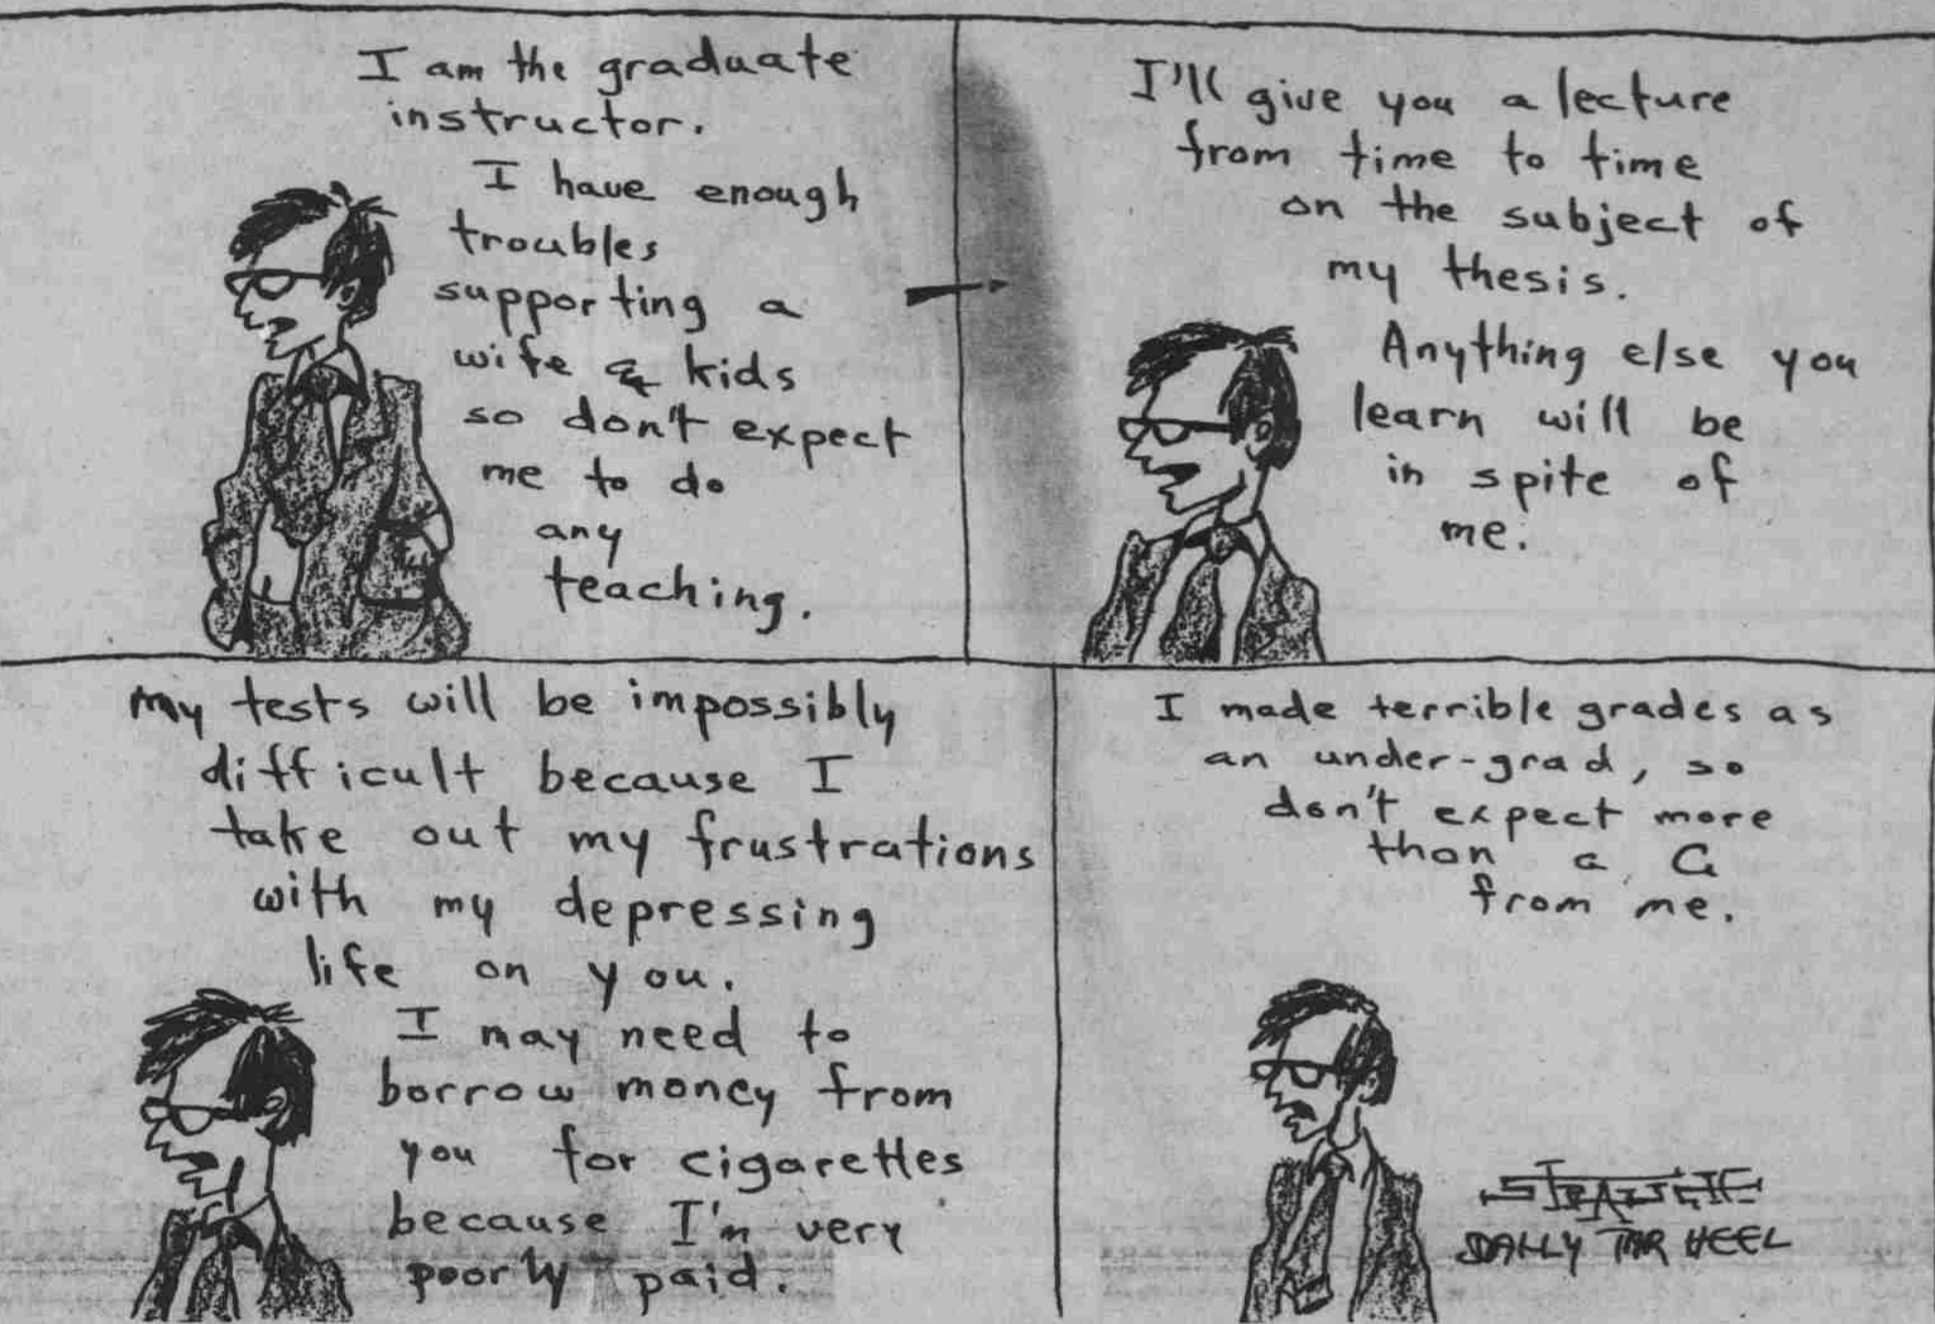 I am the graduate
instructor.
I have enough
troubles
supporting a
wife & kids
so don't expect
me to do
any
teaching.
I'll give you a lecture
from time to time
on the subject of
my thesis.
Anything else you
learn will be
in spite of
me.
My tests will be impossibly
difficult because I
take out my frustrations
with my depressing
life on you.
I may need to
borrow money from
you for cigarettes
because I'm very
poorly paid.
I made terrible grades as
an under-grad, so
don't expect more
than a C
from me.
DAILY TAR HEEL